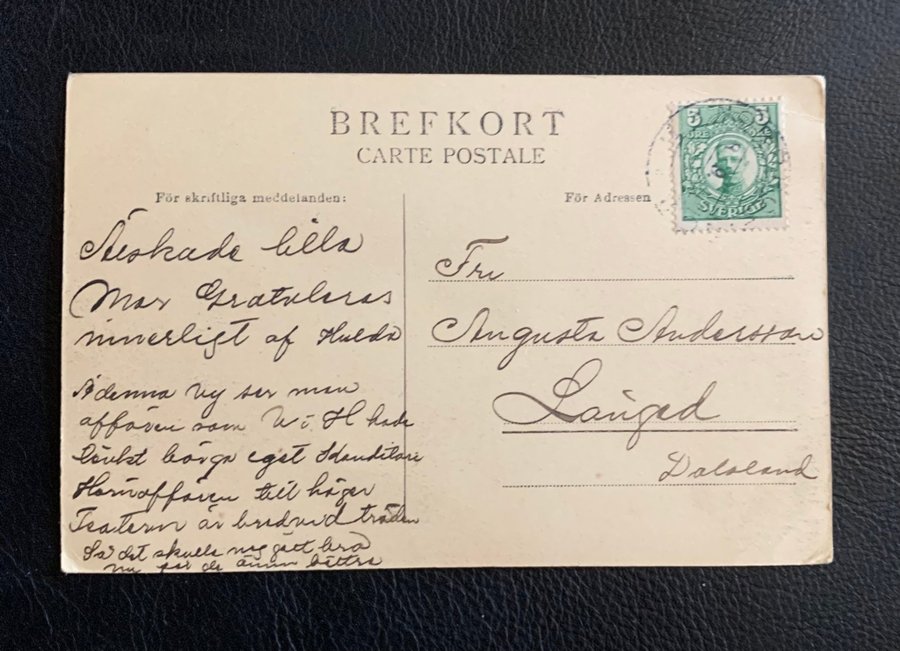 BREFKORT
CARTE POSTALE
För skriftliga meddelanden:
För Adressen
5 5
ÖRE
SVERIGE
Älskade lilla
Mor Gratuleras
innerligt af Hulda
Å denna vy ser man
affären som W i H hade
tänkt börja eget
Hörnaffären till höger
Teatern är bredvid träden
Så det skulle nog gått bra
nu går de ännu bättre
Fru
Augusta Andersson
Långed
Dalsland